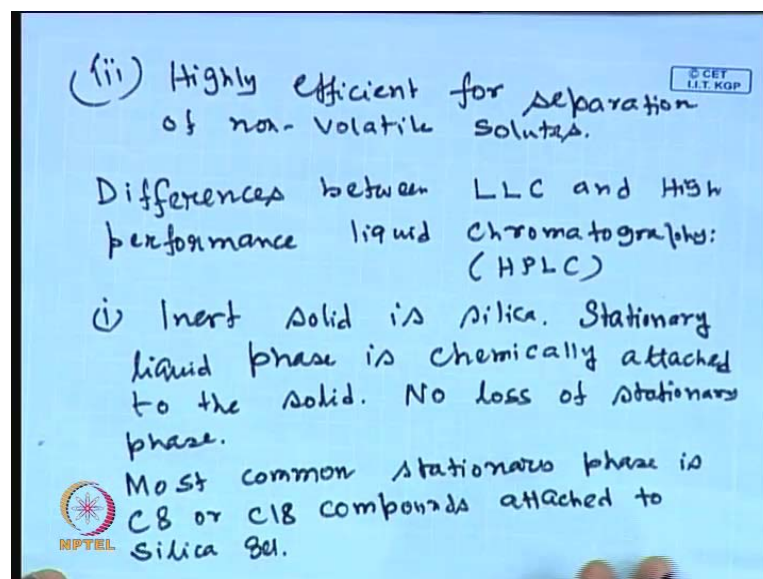 (iii) Highly efficient for separation
of non-volatile solutes.
© CET
I.I.T. KGP
Differences between LLC and High
performance liquid chromatography:
(HPLC)
(i) Inert solid is silica. Stationary
liquid phase is chemically attached
to the solid. No loss of stationary
phase.
Most common stationary phase is
C8 or C18 compounds attached to
silica gel.
NPTEL